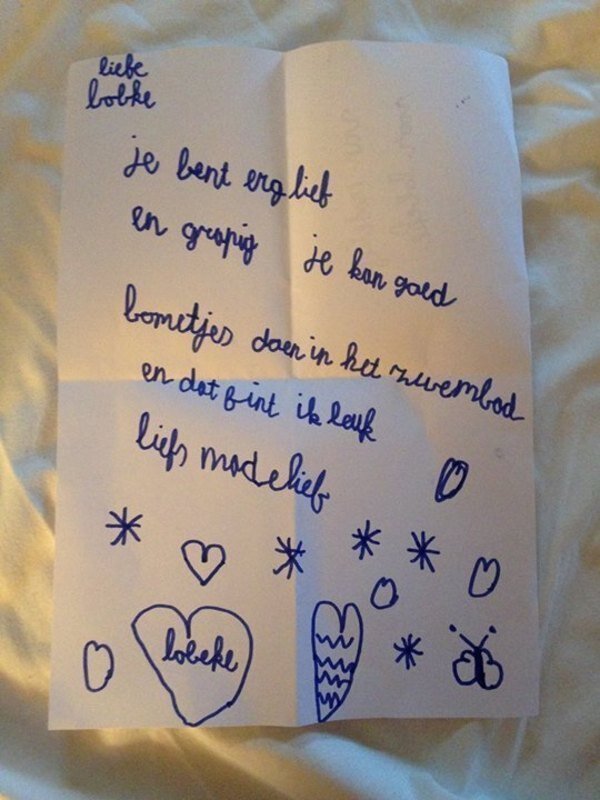 liefe
bobke
je bent erg lief
en grapig je kan goed
bometjes doen in het zwembad
en dat fint ik leuk
liefs madelief
bobeke